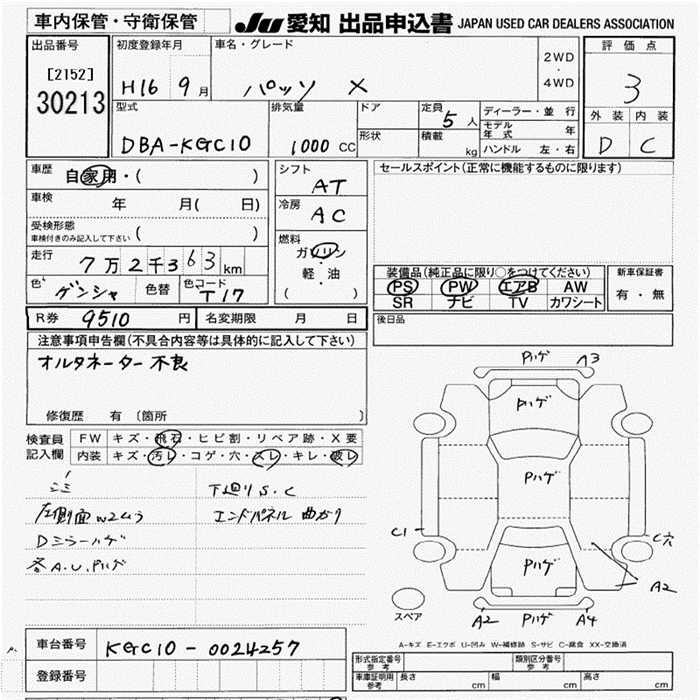 車内保管・守衛保管
JU 愛知 出品申込書 JAPAN USED CAR DEALERS ASSOCIATION
出品番号
[2152]
30213
初度登録年月
H16 9月
車名・グレード
パッソ X
2WD
・
4WD
評価点
3
外装 内装
D C
型式
DBA-KGC10
排気量
1000 CC
ドア
形状
定員
5 人
積載
kg
ディーラー・並 行
モデル年式 年
ハンドル 左・右
車歴
自家用・( )
車検
年 月( 日)
受検形態
車検付きのみ記入して下さい ( )
走行
7万2千363km
色 色替 色コード
T17
シフト
AT
冷房
AC
燃料
ガソリン
・
軽・油
( )
セールスポイント(正常に機能するものに限ります)
装備品(純正品に限り○をつけてください)
PS PW エアB AW
SR ナビ TV カワシート
新車保証書
有・無
R券 9510 円 名変期限 月 日
後日品
注意事項申告欄(不具合内容等は具体的に記入して下さい)
オルタネーター不良
修復歴 有 〔箇所 〕
検査員
記入欄
FW キズ・飛石・ヒビ割・リペア跡・X要
内装 キズ・汚レ・コゲ・穴・スレ・キレ・破レ
下廻りS.C
左側面
エンドパネル 曲がり
Dミラーハゲ
各A.U.Pハゲ
Pハゲ A3
Pハゲ
Pハゲ
C1
C穴
Pハゲ
A2
スペア
A2 Pハゲ A4
A-キズ E-エクボ U-凹み W-補修跡 S-サビ C-腐食 XX-交換済
車台番号 KGC10-0024257
登録番号
形式指定番号
参考
類別区分番号
参考
車庫証明用
参考
長さ cm 幅 cm 高さ cm